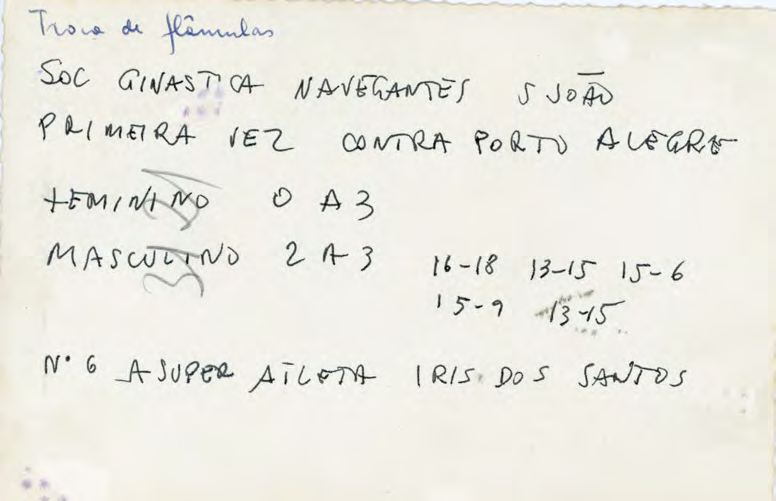 Troca de flâmulas
SOC GINASTICA NAVEGANTES S JOÃO
PRIMEIRA VEZ CONTRA PORTO ALEGRE
FEMININO 0 A 3
MASCULINO 2 A 3
16-18 13-15 15-6
15-9 13-15
Nº 6 A SUPER ATLETA IRIS DOS SANTOS